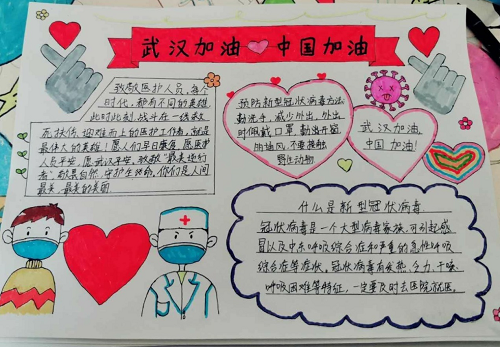 武汉加油 中国加油
致敬医护人员,每个
时代,都有不同的英雄
此时此刻,战斗在一线救
死扶伤,迎难而上的医护工作者,就是
最伟大的英雄!愿人们早日康复,愿医护
人员平安,愿武汉平安,致敬"最美逆行
者"敬畏自然,守护生命,你们是人间
最美,最美的美丽
预防新型冠状病毒方法
勤洗手,减少外出,外出
时佩戴口罩,勤出开窗
通风,不要接触
野生动物
武汉加油,
中国加油!
什么是新型冠状病毒
冠状病毒是一个大型病毒家族,可引起感
冒以及中东呼吸综合症和严重的急性呼吸
综合征等症状,冠状病毒有发热,乏力,干咳,
呼吸困难等特征,一定要及时去医院就医。